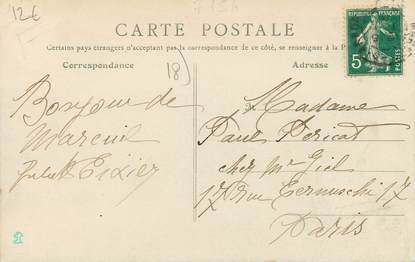 12€
CARTE POSTALE
Certains pays étrangers n'acceptant pas la correspondance de ce côté, se renseigner à la P
Correspondance
Adresse
18)
RÉPUBLIQUE FRANÇAISE
5c
POSTES
Bonjour de
Mareuil
Madame
Paul Pericat
chez Mr Giel
17 rue Cernuschi 17
Paris